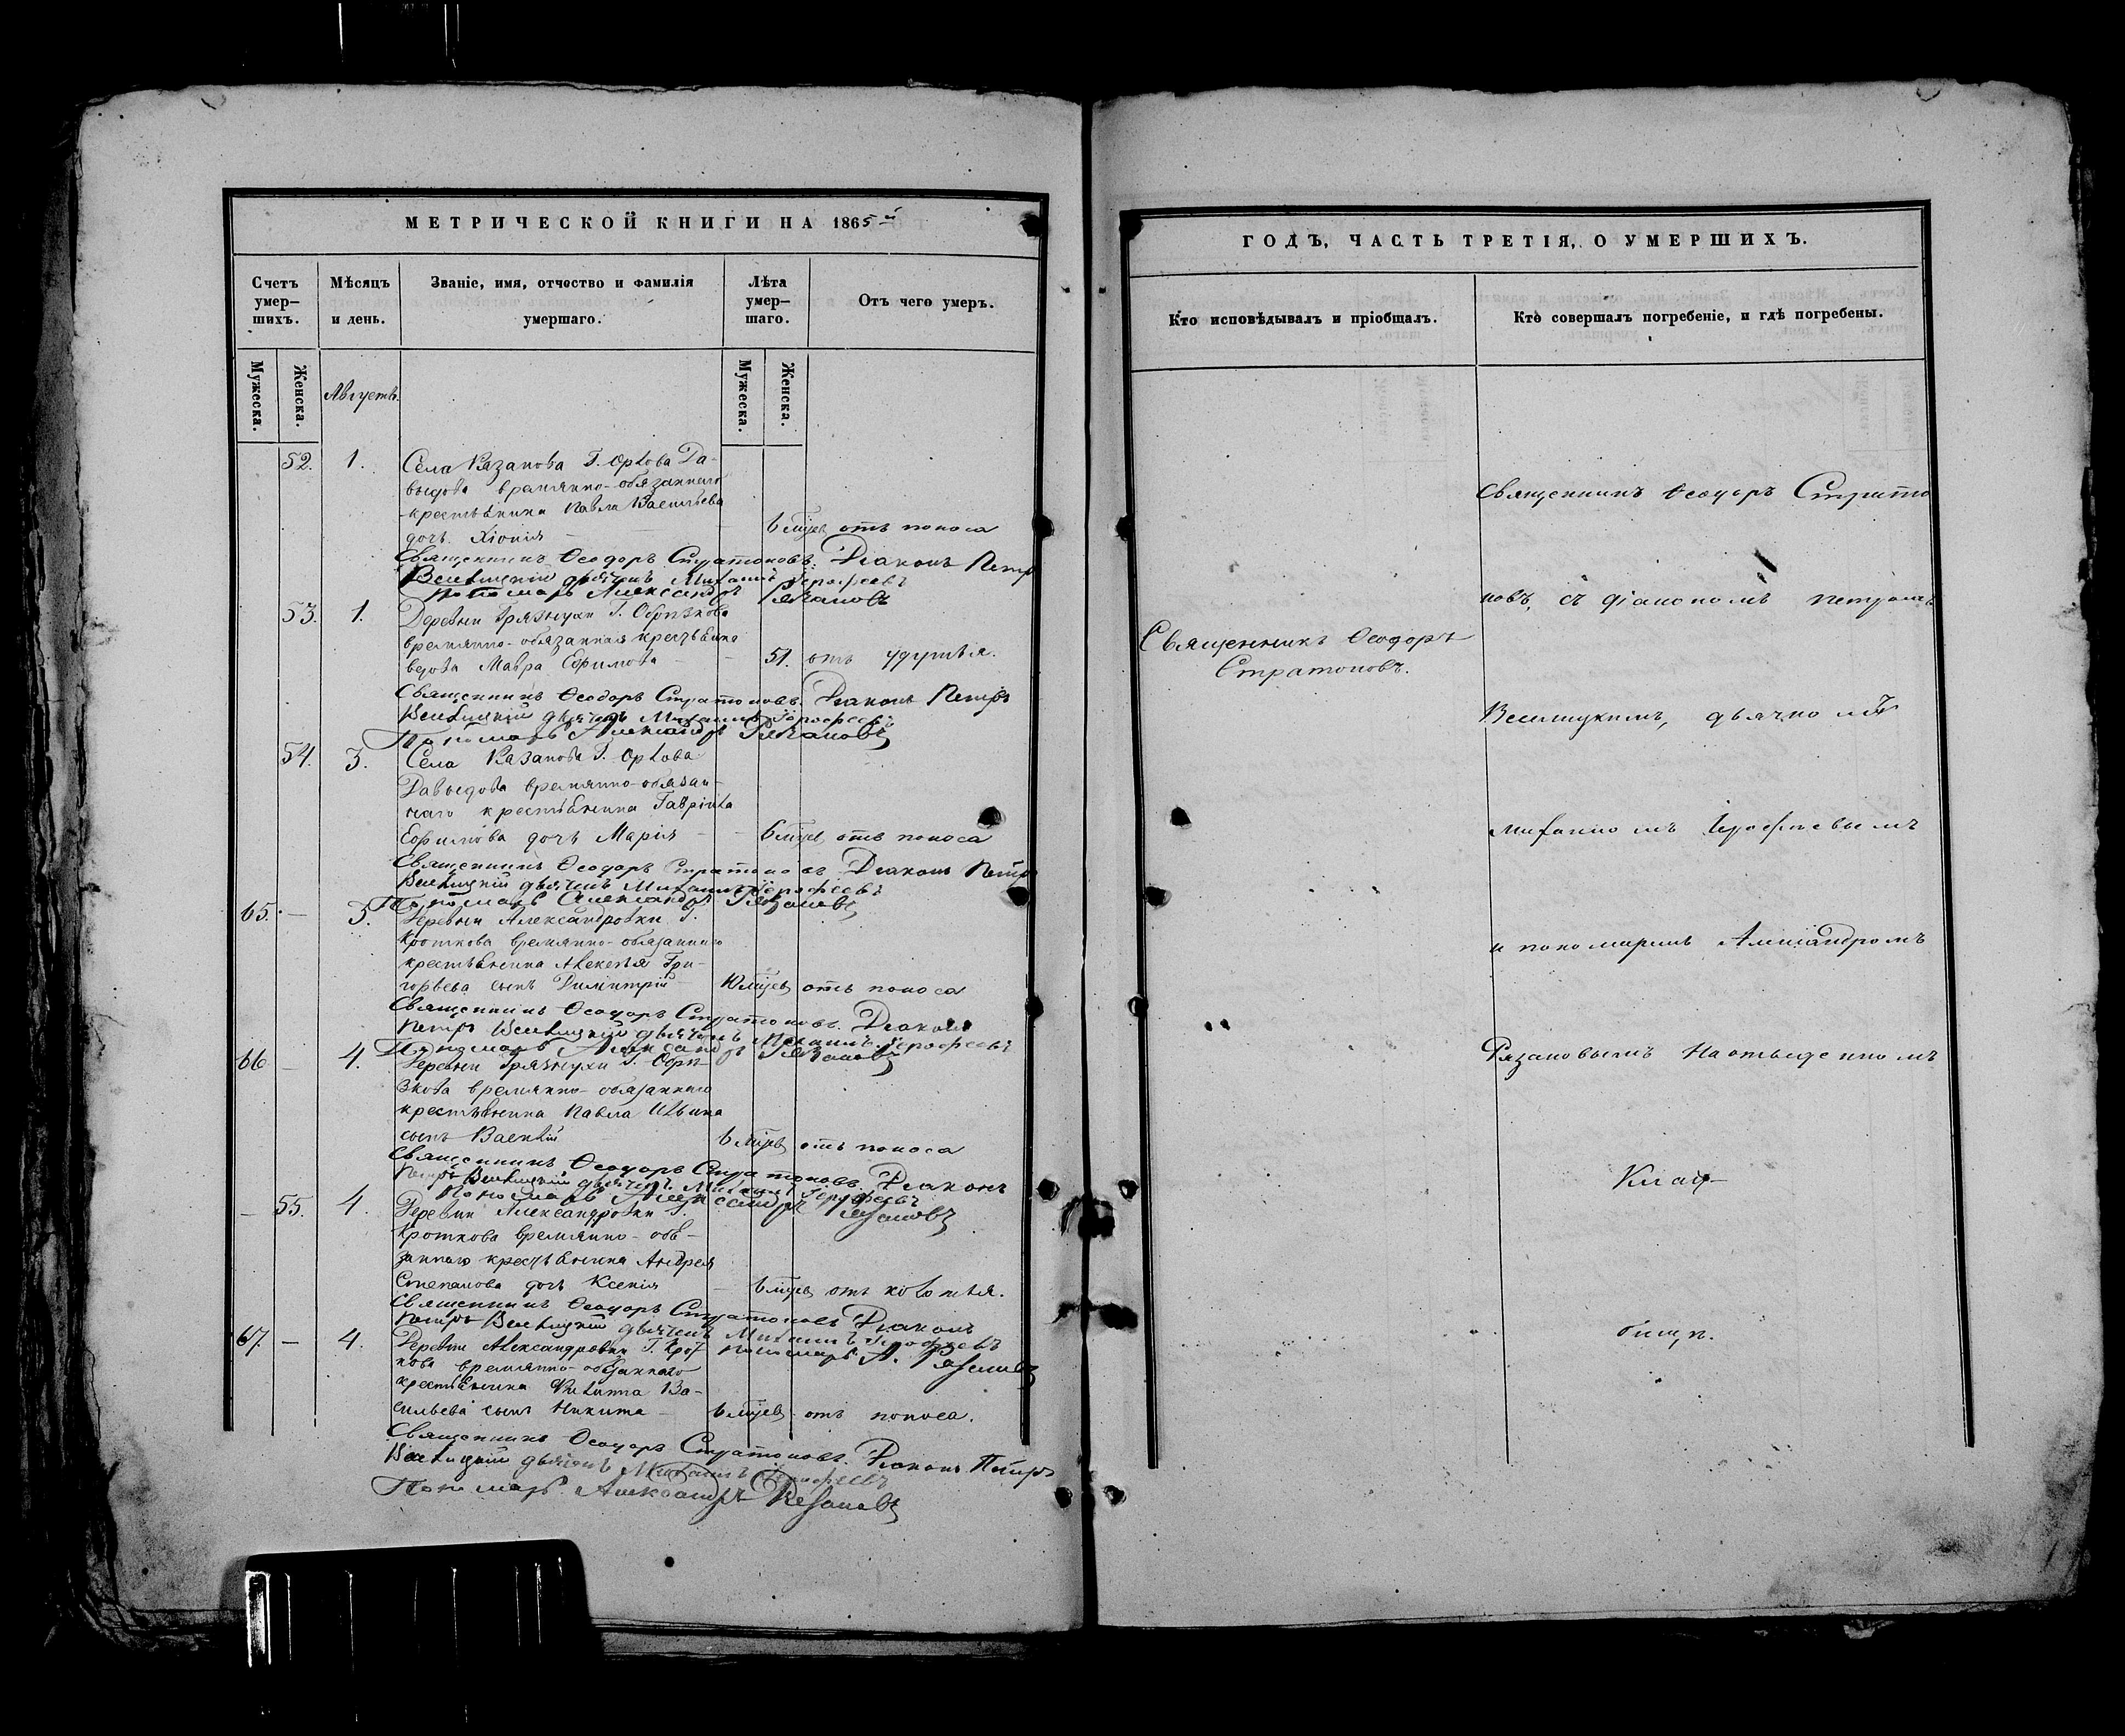 МЕТРИЧЕСКОЙ КНИГИ НА 1865й
Счетъ умер-шихъ.
Мѣсяцъ и день.
Званіе, имя, отчество и фамилія умершаго.
Лѣта умер-шаго.
Отъ чего умеръ.
Мужеска.
Женска.
Августъ.
Мужеска.
Женска.
52. 1. Села Рязанова Г. Орлова Да-
выдова временно-обязаннаго
крестьянина Павла Васильева
дочь Хіонія 6 мцев отъ поноса
Священникъ Ѳеодоръ Стратоновъ. Діаконъ Петръ
дьячекъ Михаилъ Іерофеевъ
Пономарь Александръ Рязановъ
53. 1. Деревни Грязнухи Г. Обрѣзкова
временно-обязанная крестьянка
вдова Мавра Ефимова 51. отъ удушья.
Священникъ Ѳеодоръ Стратоновъ. Діаконъ Петръ
дьячекъ Михаилъ Іерофеевъ
Пономарь Александръ Рязановъ
54. 3. Села Рязанова Г. Орлова
Давыдова временно-обязан-
наго крестьянина Гавріила
Ефимова дочь Марія 6 мцев отъ поноса
Священникъ Ѳеодоръ Стратоновъ Діаконъ Петръ
дьячекъ Михаилъ Іерофеевъ
Пономарь Александръ Рязановъ
65. — 3. Деревни Александровки Г.
Кроткова временно-обязаннаго
крестьянина Алексѣя Гри-
горьева сынъ Димитрій 10 мцев отъ поноса
Священникъ Ѳеодоръ Стратоновъ. Діаконъ
Петръ дьячекъ Михаилъ Іерофеевъ
Пономарь Александръ Рязановъ
66 — 4. Деревни Грязнухи Г. Обрѣ-
зкова временно-обязаннаго
крестьянина Павла Ильина
сынъ Василій 6 мцев отъ поноса
Священникъ Ѳеодоръ Стратоновъ Діаконъ
Петръ дьячекъ Михаилъ Іерофеевъ
Пономарь Александръ Рязановъ
— 55. 4. Деревни Александровки Г.
Кроткова временно-обя-
заннаго крестьянина Андрея
Степанова дочь Ксенія 6 мцев отъ колотья.
Священникъ Ѳеодоръ Стратоновъ Діаконъ
Петръ дьячекъ Михаилъ Іерофеевъ
67. — 4. Деревни Александровки Г. Крот-
Пономарь А. Рязановъ
кова временно-обязаннаго
крестьянина Филиппа Ва-
сильева сынъ Никита 6 мцев отъ поноса.
Священникъ Ѳеодоръ Стратоновъ. Діаконъ Петръ
дьячекъ Михаилъ Іерофеевъ
Пономарь Александръ Рязановъ
ГОДЪ, ЧАСТЬ ТРЕТІЯ, О УМЕРШИХЪ.
Кто исповѣдывалъ и пріобщалъ.
Кто совершалъ погребеніе, и гдѣ погребены.
Священникъ Ѳеодоръ
Стратоновъ.
Священникъ Ѳеодоръ Страто
новъ, съ діакономъ Петромъ
дьячкомъ
Михаиломъ Іерофеевымъ
и пономаремъ Александромъ
Рязановымъ на отведенномъ
клад-
бищѣ.